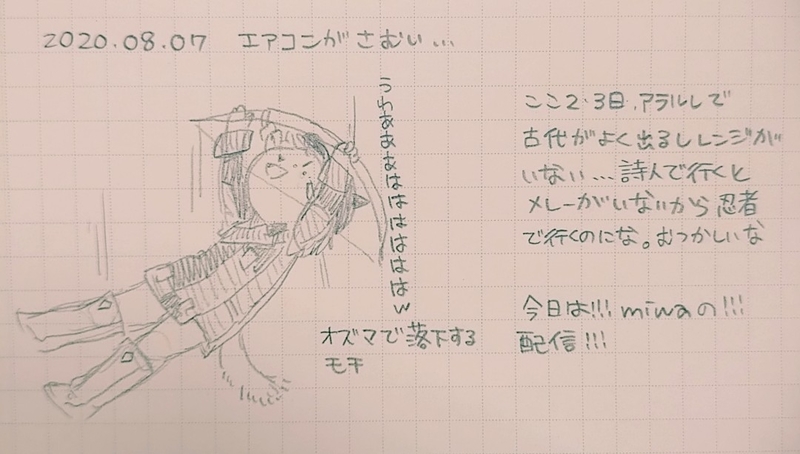 2020.08.07 エアコンがさむい…
うわぁぁぁはははははははw
オズマで落下する
モチ
ここ2・3日、アラルレで
古代がよく出るしレンジが
いない…詩人で行くと
メレーがいないから忍者
で行くのにな。むつかしいな
今日は!!! miwaの!!!
配信!!!